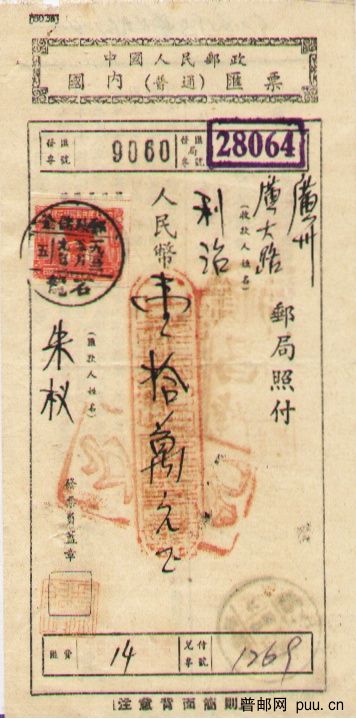 [0028]
中國人民郵政
國內(普通)匯票
匯票號 9060
匯局號 28064
廣州
郵局照付
利治
(收款人姓名)
人民幣壹拾萬元正
(匯款人姓名)
朱
發票員蓋章
匯費 14
兌付號 1269
注意背面簡則
普邮网 puu.cn